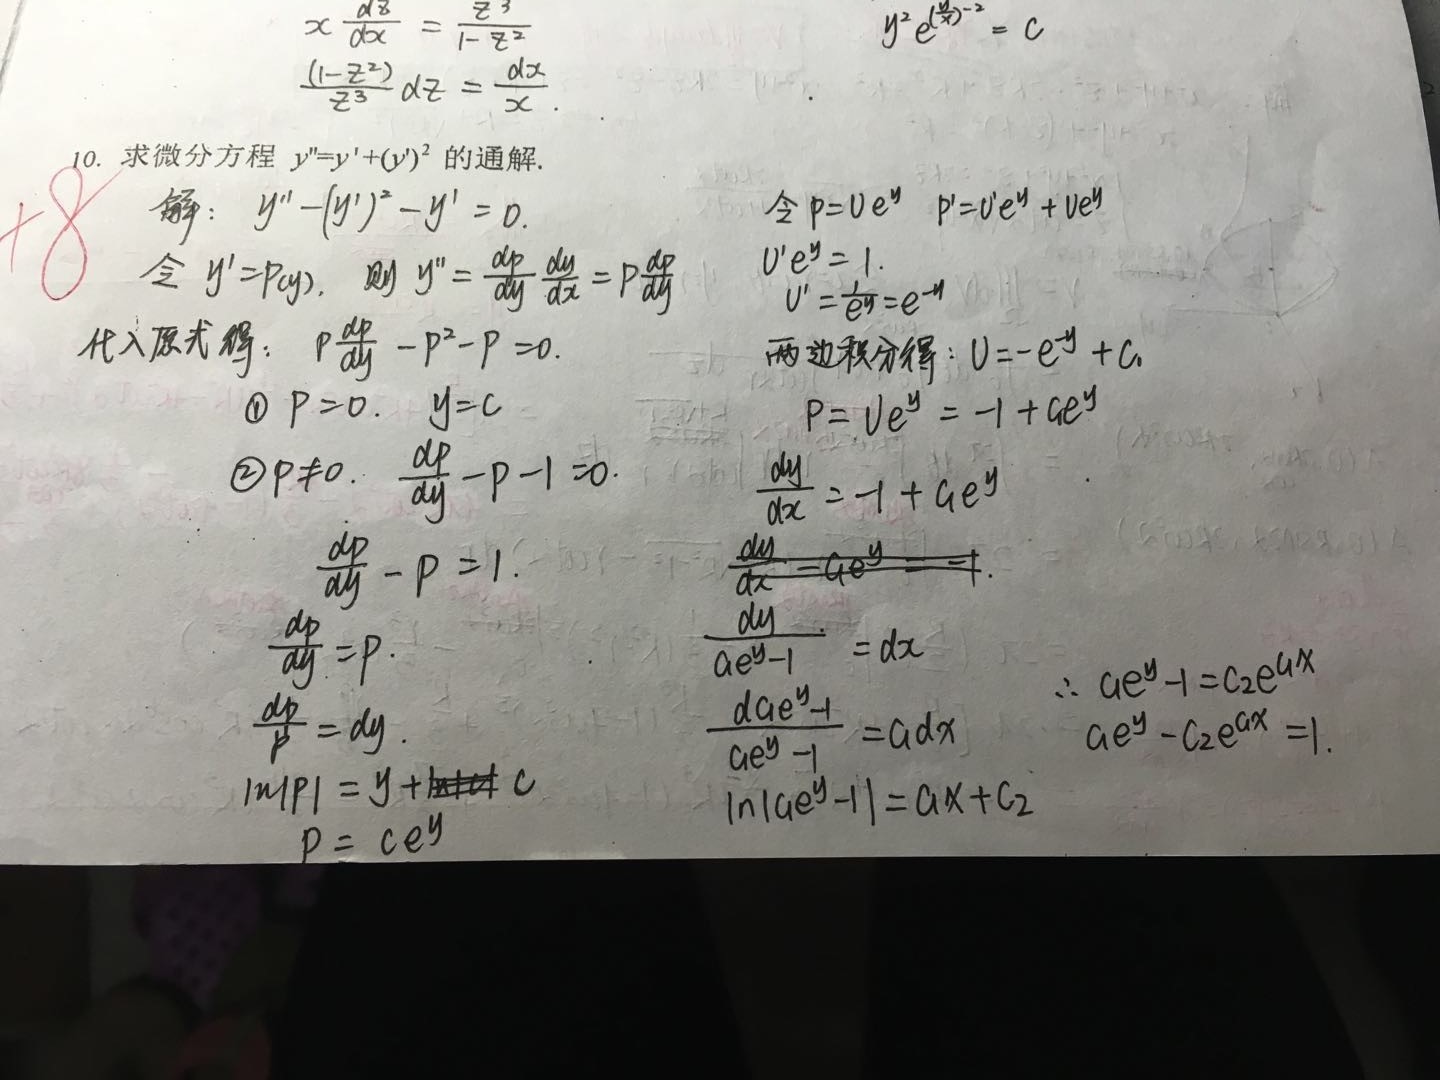 x dz/dx = z³/1-z²
(1-z²)/z³ dz = dx/x.
y²e^(y/x)^-2 = c
10. 求微分方程 y''=y'+(y')² 的通解.
+8
解: y''-(y')²-y'=0.
令 y'=p(y). 则 y''=dp/dy dy/dx = p dp/dy
代入原式得: p dp/dy - p² - p = 0.
① p=0. y=c
② p≠0. dp/dy - p - 1 = 0.
dp/dy - p = 1.
dp/dy = p.
dp/p = dy.
ln|p| = y + c
p = ce^y
令 p=ue^y p'=u'e^y+ue^y
u'e^y = 1.
u' = 1/e^y = e^-y
两边积分得: u=-e^-y + c₁
p = ue^y = -1 + c₁e^y
dy/dx = -1 + c₁e^y
dy/dx - c₁e^y = -1.
dy/c₁e^y-1 = dx
dc₁e^y-1/c₁e^y-1 = c₁dx
ln|c₁e^y-1| = c₁x+c₂
∴ c₁e^y-1=c₂e^c₁x
c₁e^y-c₂e^c₁x=1.